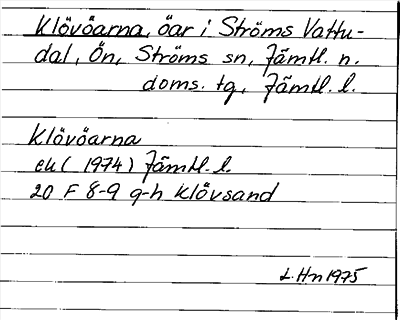 Klövöarna, öar i Ströms Vattu-
dal, Ön, Ströms sn, Jämtl. n.
doms. tg, Jämtl. l.
Klövöarna
ek (1974) Jämtl. l.
20 F 8-9 g-h Klövsand
L. Hn 1975